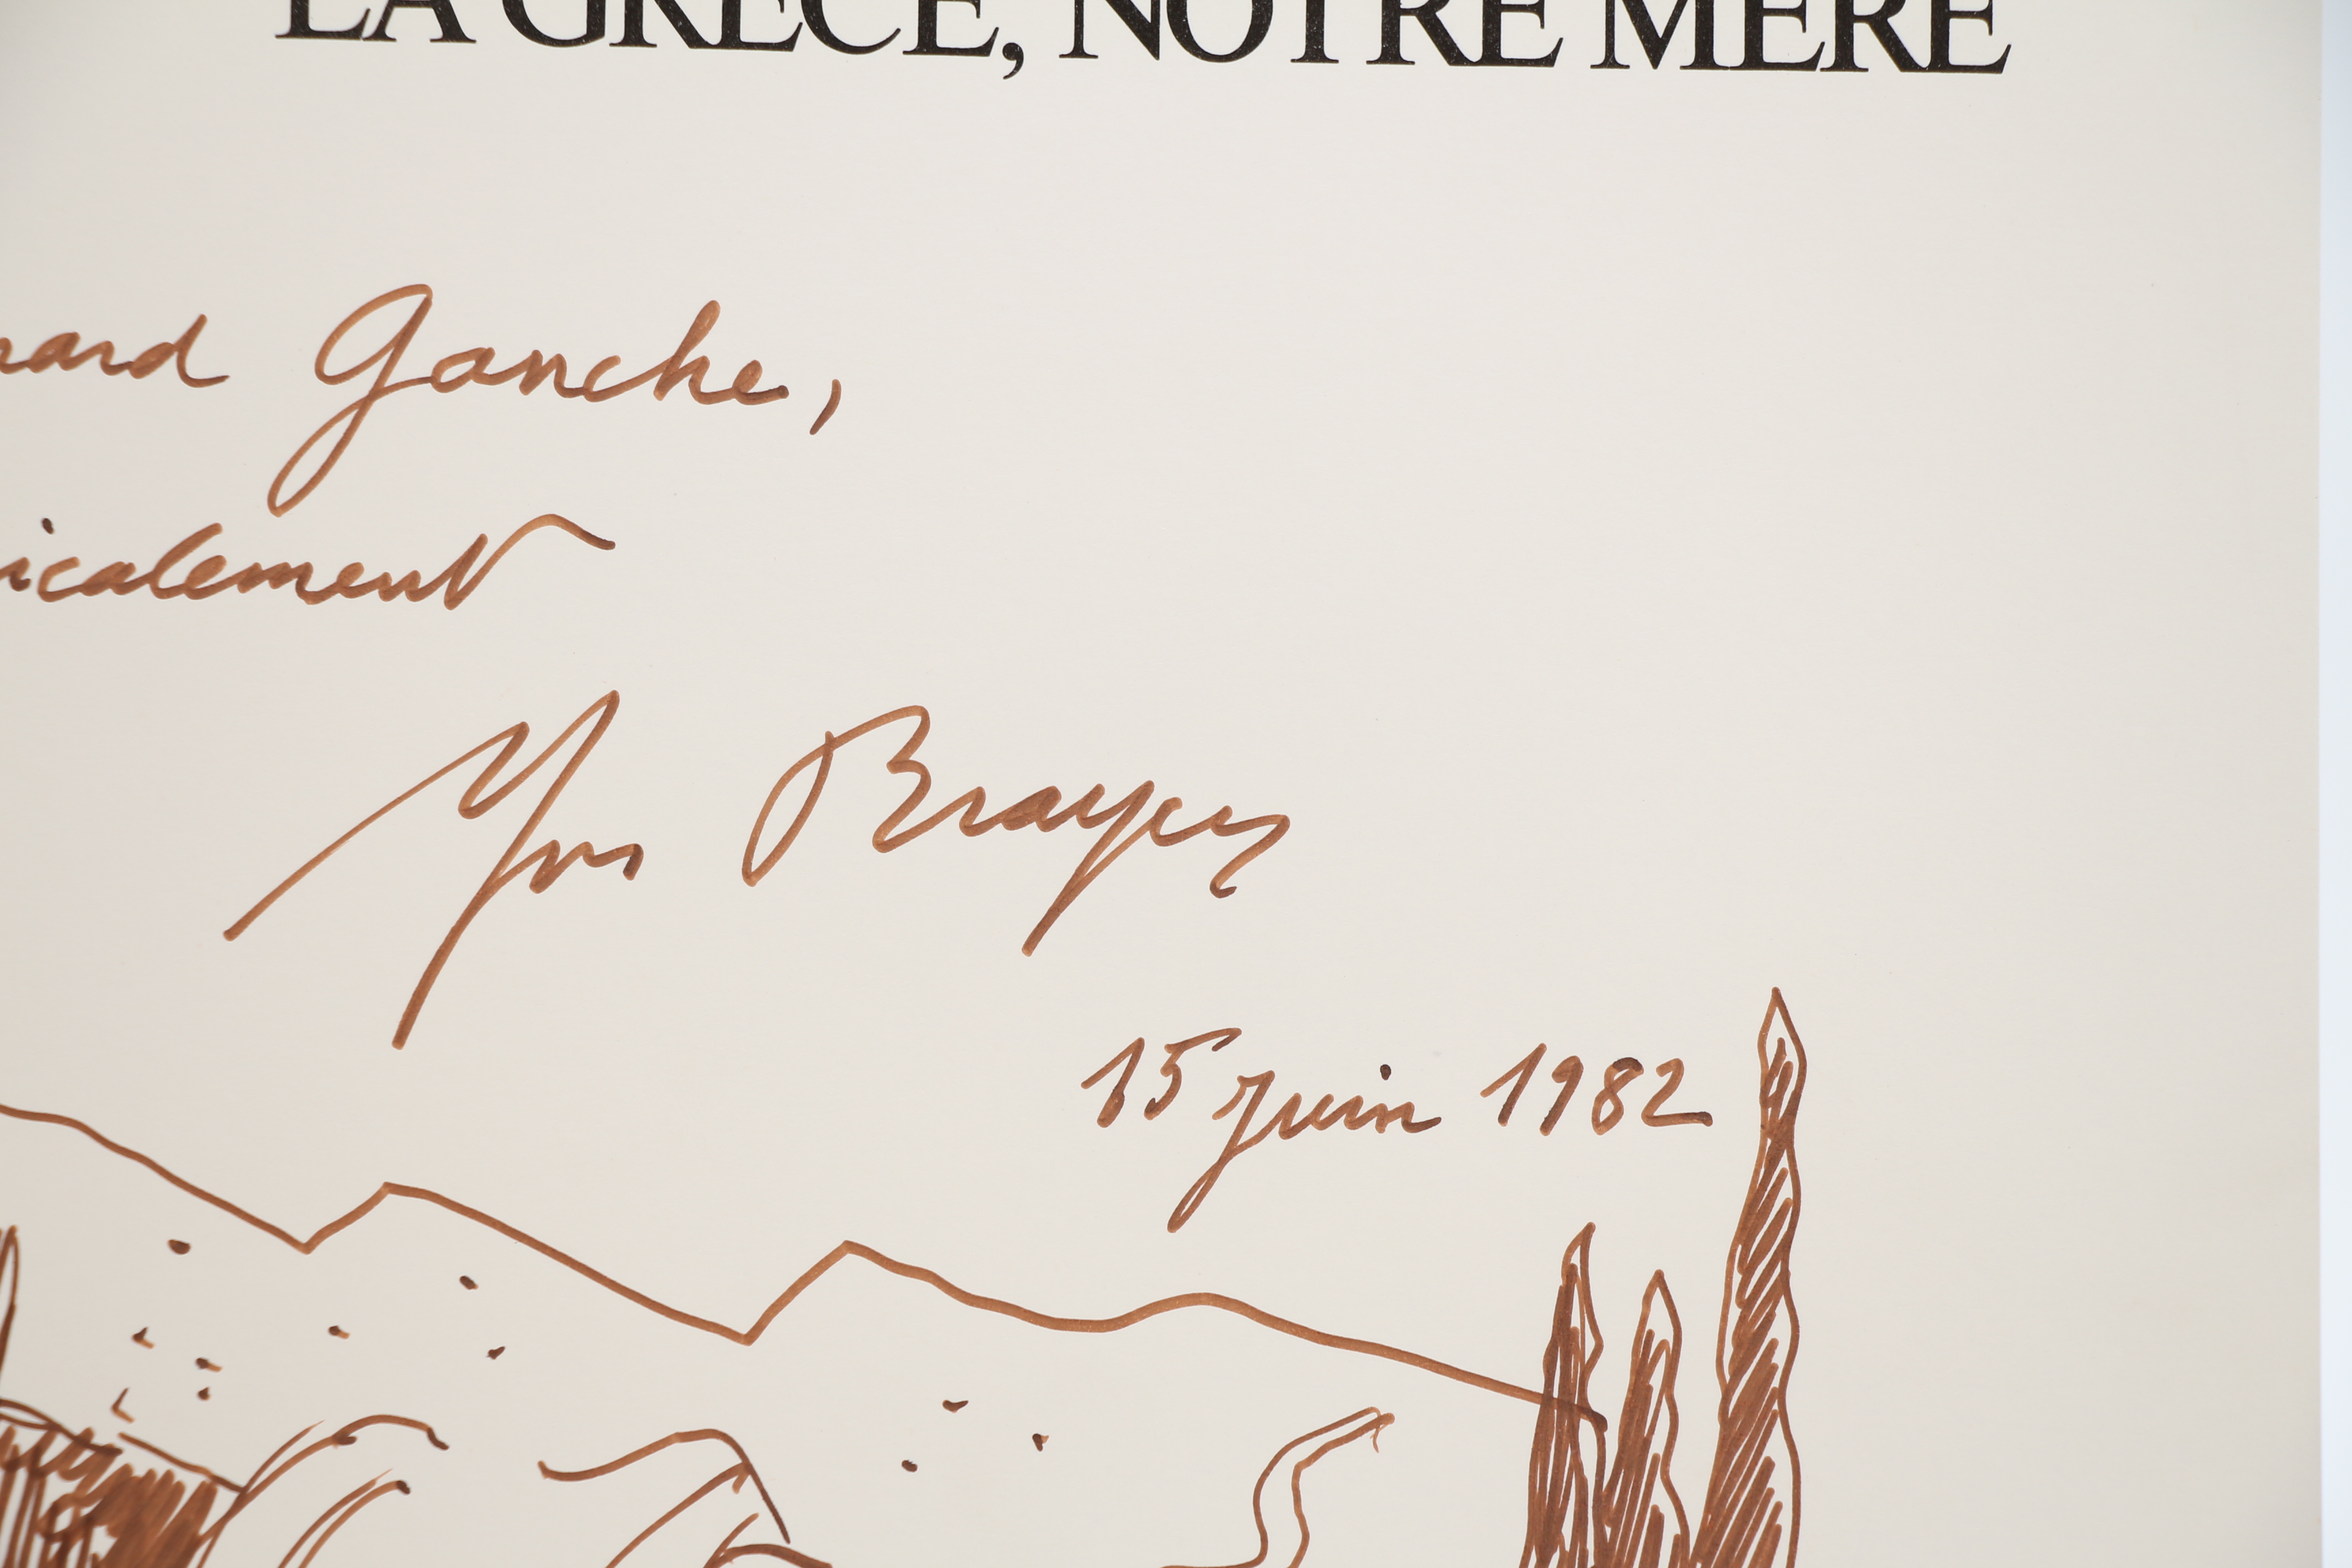 LA GRÈCE, NOTRE MÈRE
nard Ganche,
icalement
Yves Brayer
15 juin 1982